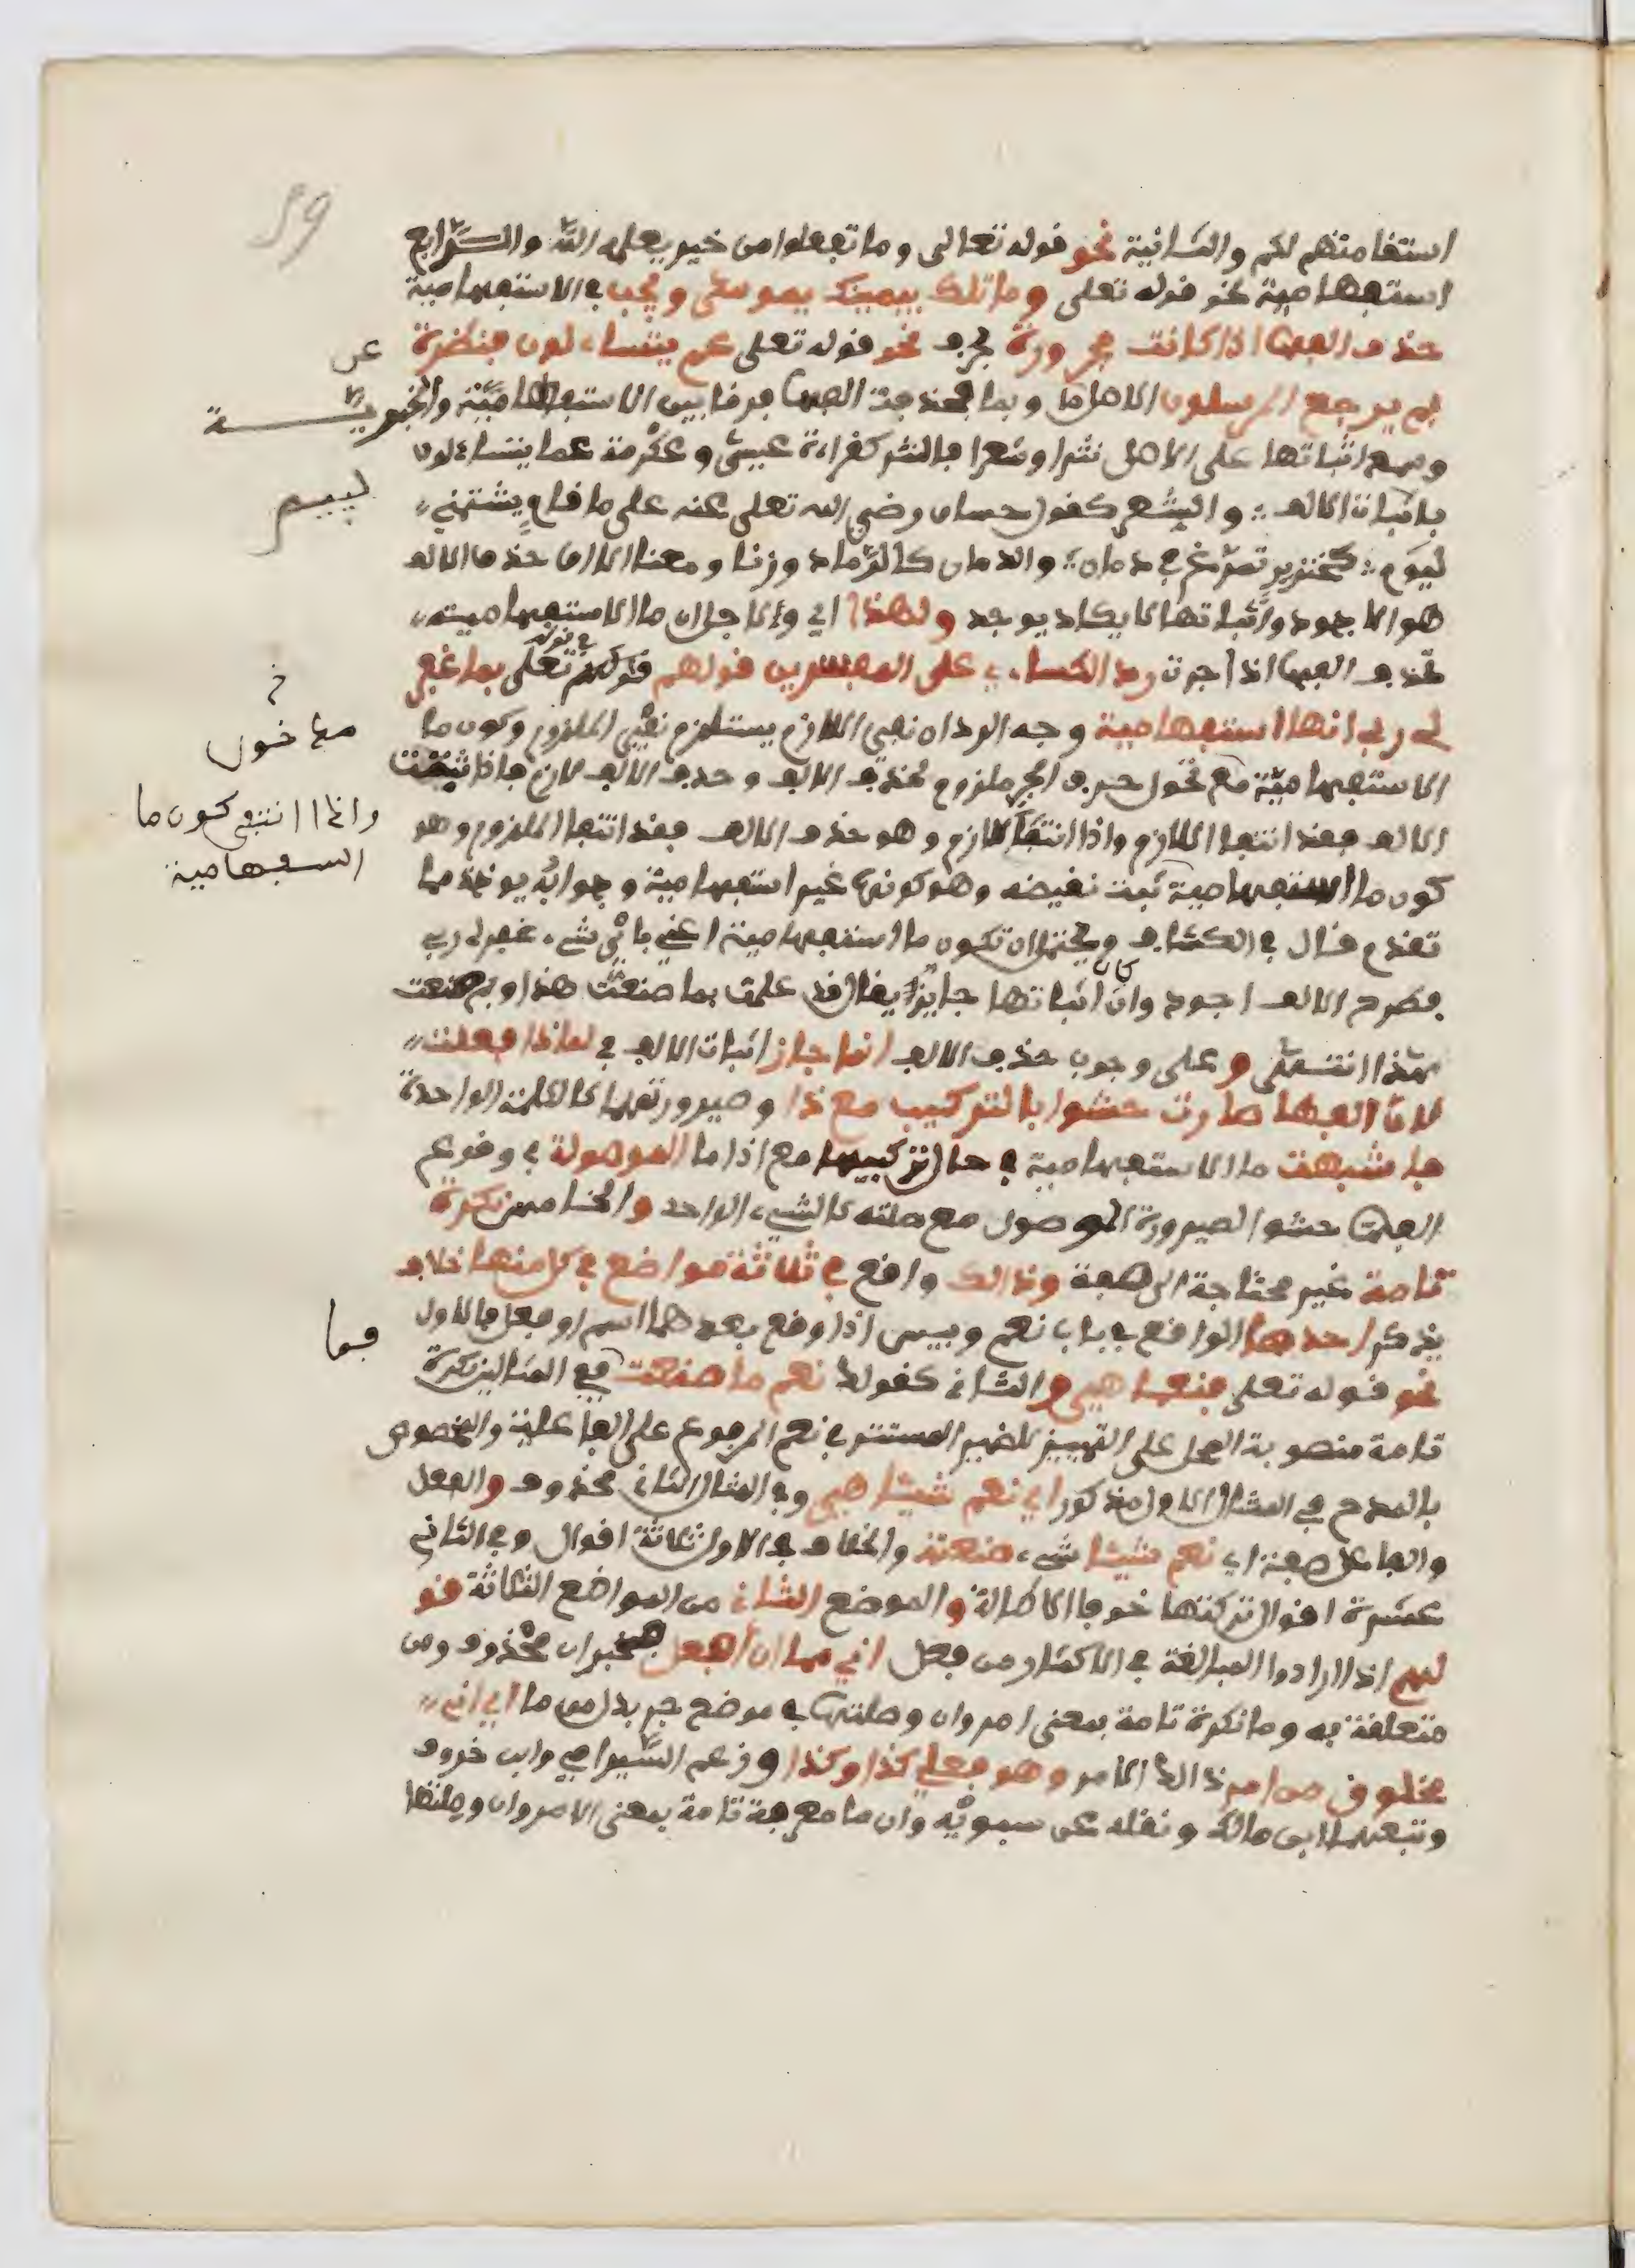 59
استقامتهم لكم والثانية نحو قوله تعالى وما تفعلوا من خير يعلمه الله والرابع
استفهامية نحو قوله تعلى وما تلك بيمينك يموسى ويجب في الاستفهامية
حذف الفها اذا كانت مجرورة بحرف نحو قوله تعلى عم يتساءلون فنظرة
عن
بم يرجع المرسلون الاصل ما وبما فحذفت الفها فرقا بين الاستفهامية والخبرية
وسمع اثباتها على الاصل نثرا وشعرا فالنثر كقراءة عيسى وعكرمة عما يتساءلون
باثبات الالف والشعر كقول حسان رضي الله تعلى عنه على ما قام يشتمني
لييم
ليوم كخنزير تمرغ في دمان والدمان كالرماد وزنا ومعنا الا ان حذف الالف
هو الاجود واثباتها لا يكاد يوجد ولهذا اي ولاجل ان ما الاستفهامية
تحذف الفها اذا جرت رد الكساءي على المفسرين قولهم في قوله تعلى بما غفر
لي ربي انها استفهامية وجه الرد ان نفي اللازم يستلزم نفي الملزوم وكون ما
مدخول
الاستفهامية مع نحول حرف الجر ملزوم لحذف الالف وحذف الالف لازم فاذا ثبتت
الالف فقد انتفا اللازم واذا انتفا اللازم وهو حذف الالف فقد انتفا الملزوم وهو
واذا انتفى كون ما
استفهامية
كون ما استفهامية ثبت نقيضه وهو كونها غير استفهامية وجوابه يوخذ مما
تقدم قال في الكشاف ويحتمل ان تكون ما استفهامية اعني باي شيء غفر لي ربي
فطرح الالف اجود وان كان اثباتها جايزا يقال قد علمت بما صنعت هذا وبم صنعت
هذا انتهى وعلى وجوب حذف الالف انما جاز اثبات الالف في لماذا فعلت
لان الفها صارت حشوا بالتركيب مع ذا وصيرورتهما كالكلمة الواحدة
فاشبهت ما الاستفهامية في حال تركيبها مع ذا ما الموصولة في وقوع
الفها حشوا لصيرورة الموصول مع صلته كالشيء الواحد والخامس نكرة
تامة غير محتاجة الى صفة وذالك واقع في ثلاثة مواضع في كل منها خلاف
يذكر احدها الواقع في باب نعم وبيس اذا وقع بعدهما اسم او فعل فالاول
فما
نحو قوله تعلى فنعما هي والثاني كقولك نعم ما صنعت في المثالين نكرة
تامة منصوبة المحل على التمييز للضمير المستتر في نعم المرفوع على الفاعلية والمخصوص
بالمدح في المثال الاول مذكور اي نعم شيئا هي وفي المثال الثاني محذوف والفعل
والفاعل صفة اي نعم شيئا شيء صنعته والخلاف في الاول ثلاثة اقوال وفي الثاني
عشرة اقوال تركتها خوف الاطالة والموضع الثاني من المواضع الثلاثة قو
لهم اذا ارادوا المبالغة في الاكثار من فعل اني مما ان افعل فخبر ان محذوف ومن
متعلقة به وما نكرة تامة بمعنى امر وان وصلتها في موضع جر بدل من ما اي اني
مخلوق من امر ذالك الامر وهو فعلي كذا وكذا وزعم السيرافي وابن خروف
وتبعهما ابن مالك ونقله عن سيبويه وان ما معرفة تامة بمعنى الامر وان وصلتها